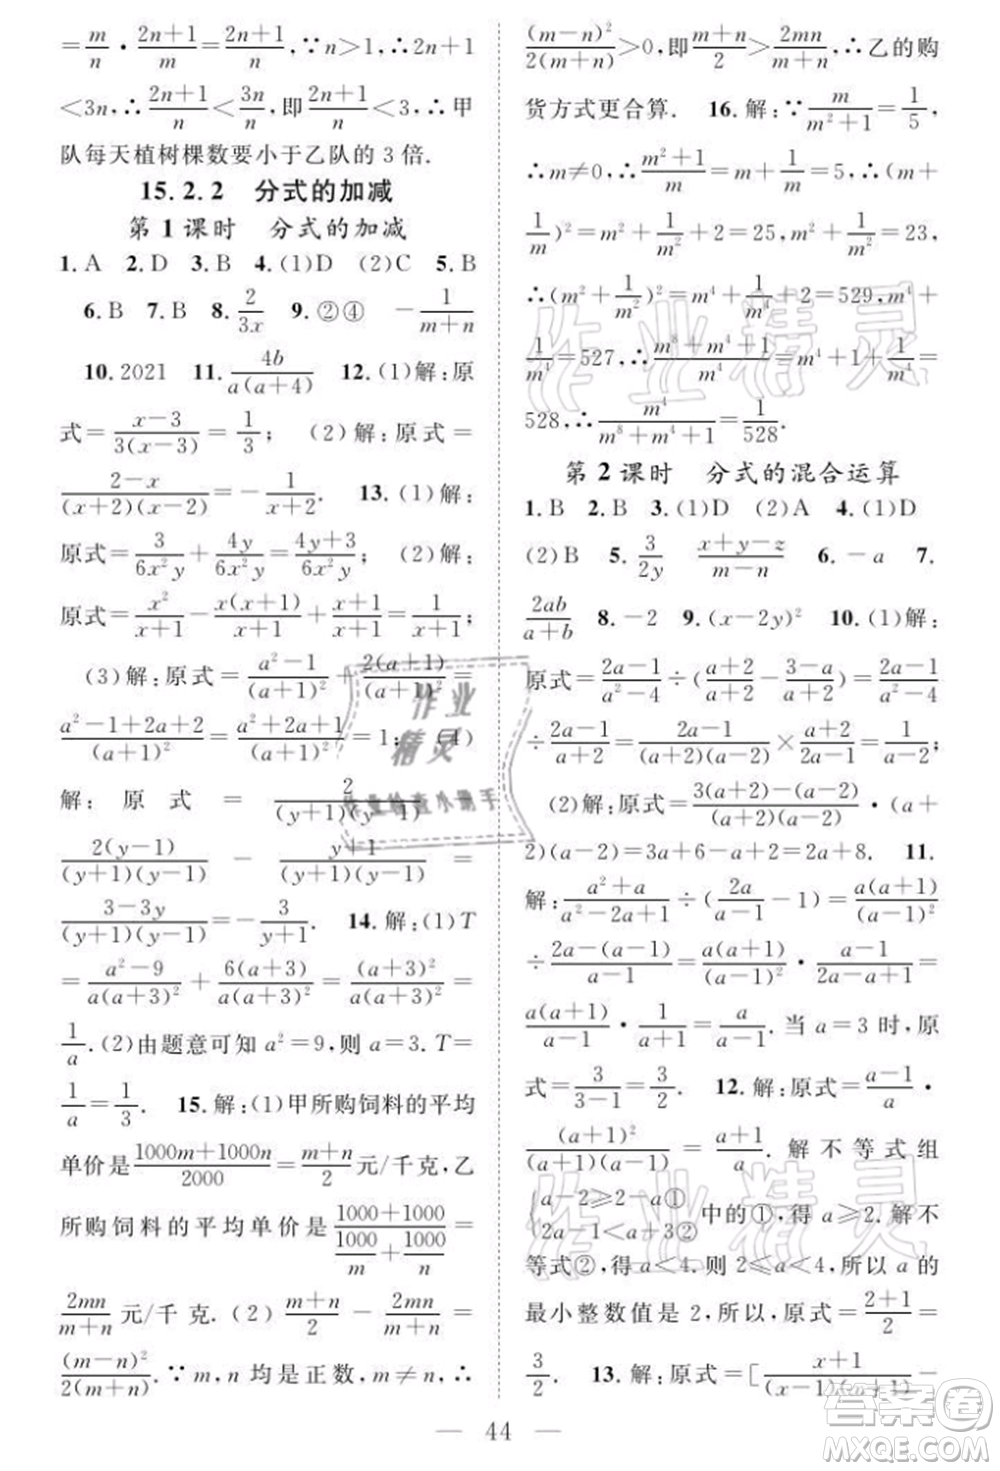 =m/n·(2n+1)/m=(2n+1)/n,∵n>1,∴2n+1
<3n,∴(2n+1)/n<3n/n,即(2n+1)/n<3,∴甲
队每天植树棵数要小于乙队的 3 倍.
15.2.2 分式的加减
第 1 课时 分式的加减
1.A 2.D 3.B 4.(1)D (2)C 5.B
6.B 7.B 8.2/(3x) 9.②④ -1/(m+n)
10.2021 11.4b/(a(a+4)) 12.(1)解:原
式=(x-3)/(3(x-3))=1/3; (2)解:原式=
(2-x)/((x+2)(x-2))=-1/(x+2). 13.(1)解:
原式=3/(6x²y)+4y/(6x²y)=(4y+3)/(6x²y); (2)解:
原式=x²/(x+1)-x(x+1)/(x+1)+(x+1)/(x+1)=1/(x+1);
(3)解:原式=(a²-1)/(a+1)²+2(a+1)/(a+1)²=
(a²-1+2a+2)/(a+1)²=(a²+2a+1)/(a+1)²=1; (4)
解:原式=2/((y+1)(y-1))-
2(y-1)/((y+1)(y-1))-(y+1)/((y+1)(y-1))=
(3-3y)/((y+1)(y-1))=-3/(y+1). 14.解:(1)T
=(a²-9)/(a(a+3)²)+6(a+3)/(a(a+3)²)=(a+3)²/(a(a+3)²)=
1/a.(2)由题意可知 a²=9,则 a=3.T=
1/a=1/3. 15.解:(1)甲所购饲料的平均
单价是(1000m+1000n)/2000=(m+n)/2元/千克,乙
所购饲料的平均单价是(1000+1000)/(1000/m+1000/n)=
2mn/(m+n)元/千克.(2)(m+n)/2-2mn/(m+n)=
(m-n)²/(2(m+n)).∵m,n 均是正数,m≠n,∴
(m-n)²/(2(m+n))>0,即(m+n)/2>2mn/(m+n),∴乙的购
货方式更合算. 16.解:∵m/(m²+1)=1/5,
∴m≠0,∴(m²+1)/m=5,∴m+1/m=5,∴(m+
1/m)²=m²+1/m²+2=25,∴m²+1/m²=23,
∴(m²+1/m²)²=m⁴+1/m⁴+2=529,∴m⁴+
1/m⁴=527,∴(m⁸+m⁴+1)/m⁴=m⁴+1+1/m⁴=
528,∴m⁴/(m⁸+m⁴+1)=1/528.
第 2 课时 分式的混合运算
1.B 2.B 3.(1)D (2)A 4.(1)D
(2)B 5.3/(2y) (x+y-z)/(m-n) 6.-a 7.
2ab/(a+b) 8.-2 9.(x-2y)² 10.(1)解:
原式=(2a-1)/(a²-4)÷((a+2)/(a+2)-(3-a)/(a+2))=(2a-1)/(a²-4)
÷(2a-1)/(a+2)=(2a-1)/((a+2)(a-2))×(a+2)/(2a-1)=1/(a-2);
(2)解:原式=(3(a+2)-(a-2))/((a+2)(a-2))·(a+
2)(a-2)=3a+6-a+2=2a+8. 11.
解:(a²+a)/(a²-2a+1)÷(2a/(a-1)-(a-1)/(a-1))=a(a+1)/(a-1)²
÷(2a-(a-1))/(a-1)=a(a+1)/(a-1)²·(a-1)/(2a-a+1)=
a(a+1)/(a-1)·1/(a+1)=a/(a-1).当 a=3 时,原
式=3/(3-1)=3/2. 12.解:原式=(a-1)/a·
(a+1)²/((a+1)(a-1))=(a+1)/a.解不等式组
{a-2≥2-a① 2a-1<a+3② 中的①,得 a≥2.解不
等式②,得 a<4.则 2≤a<4,所以 a 的
最小整数值是 2,所以,原式=(2+1)/2=
3/2. 13.解:原式=[(x+1)/((x-1)(x+1))-
44
作业精灵
作业精灵
作业精灵
作业检查小助手
答案圈
MXQE.COM